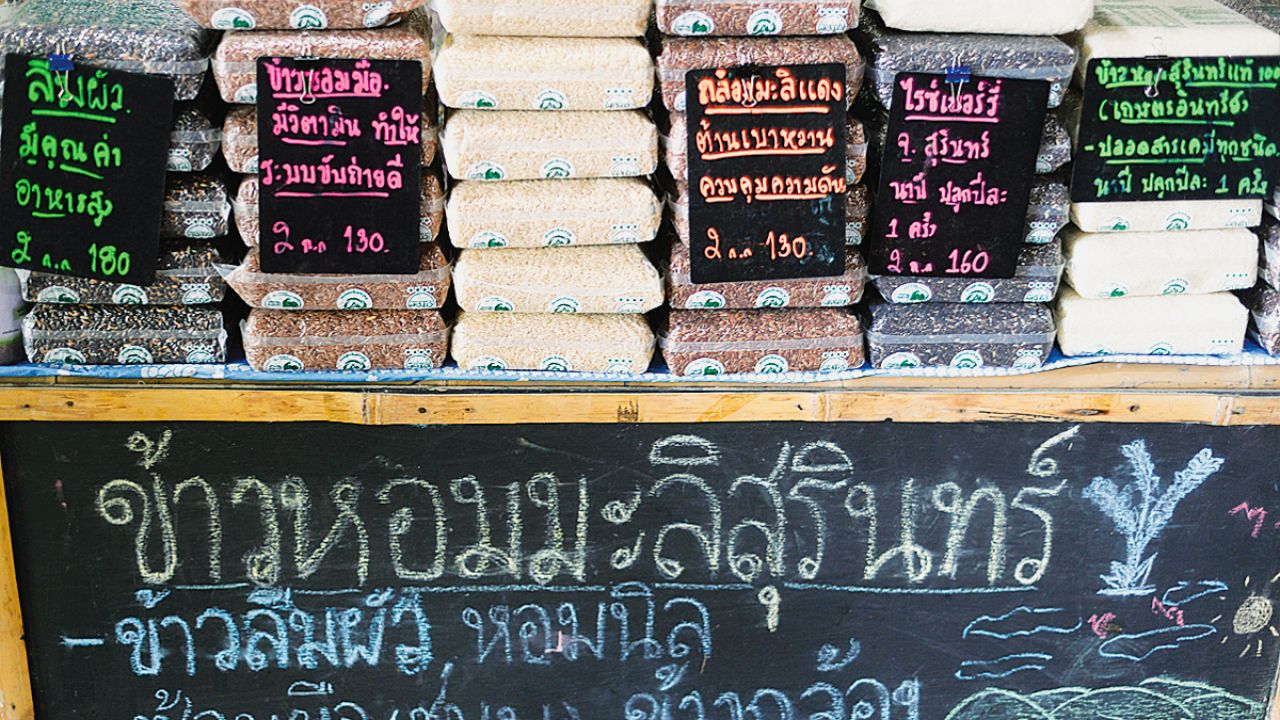 ลืมผัว.
มีคุณค่า
อาหารสูง
2 ก.ก 180
ข้าวซ้อมมือ.
มีวิตามิน ทำให้
ระบบขับถ่ายดี
2 ก.ก 130.
กล้องมะลิแดง
ต้านเบาหวาน
ควบคุมความดัน
2 ก.ก 130.
ไรซ์เบอร์รี่
จ. สุรินทร์
นาปี ปลูกปีละ
1 ครั้ง
2 ก.ก 160
ข้าวหอมสุรินทร์แท้ 100
(เกษตรอินทรีย์)
- ปลอดสารเคมีทุกชนิด.
นาปี ปลูกปีละ 1 ครั้ง
ข้าวหอมมะลิสุรินทร์
- ข้าวลืมผัว หอมนิล
ข้าวกล้อง